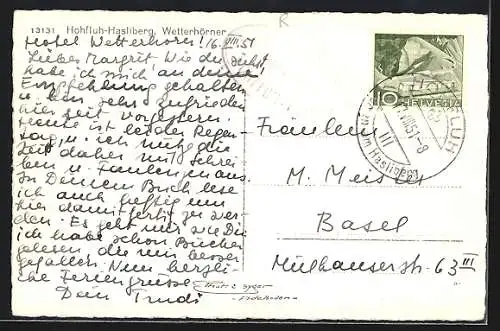 13131 Hohfluh-Hasliberg, Wetterhörner
Hotel Wetterhorn! 16. VIII. 51
Liebes Margrit. Wie du siehst
habe ich mich an deine
Empfehlung gehalten
u. bin sehr zufrieden
hier seit vorgestern.
Heute ist leider Regen-
tag, u. ich nutze die
Zeit daher mit Schrei-
ben u. Faulenzen aus.
In Deinem Buch lese
ich auch heftig um
hier damit fertig zu wer-
den. Es geht mir wie Dir
ich habe schon Bücher
gelesen die mir besser
gefallen. Nun herzli-
che Feriengrüsse
Dein Trudi
HELVETIA
10
VIII.51-8
am Hasliberg
Fräulein
M. Meister
Basel
Mülhauserstr. 63 III